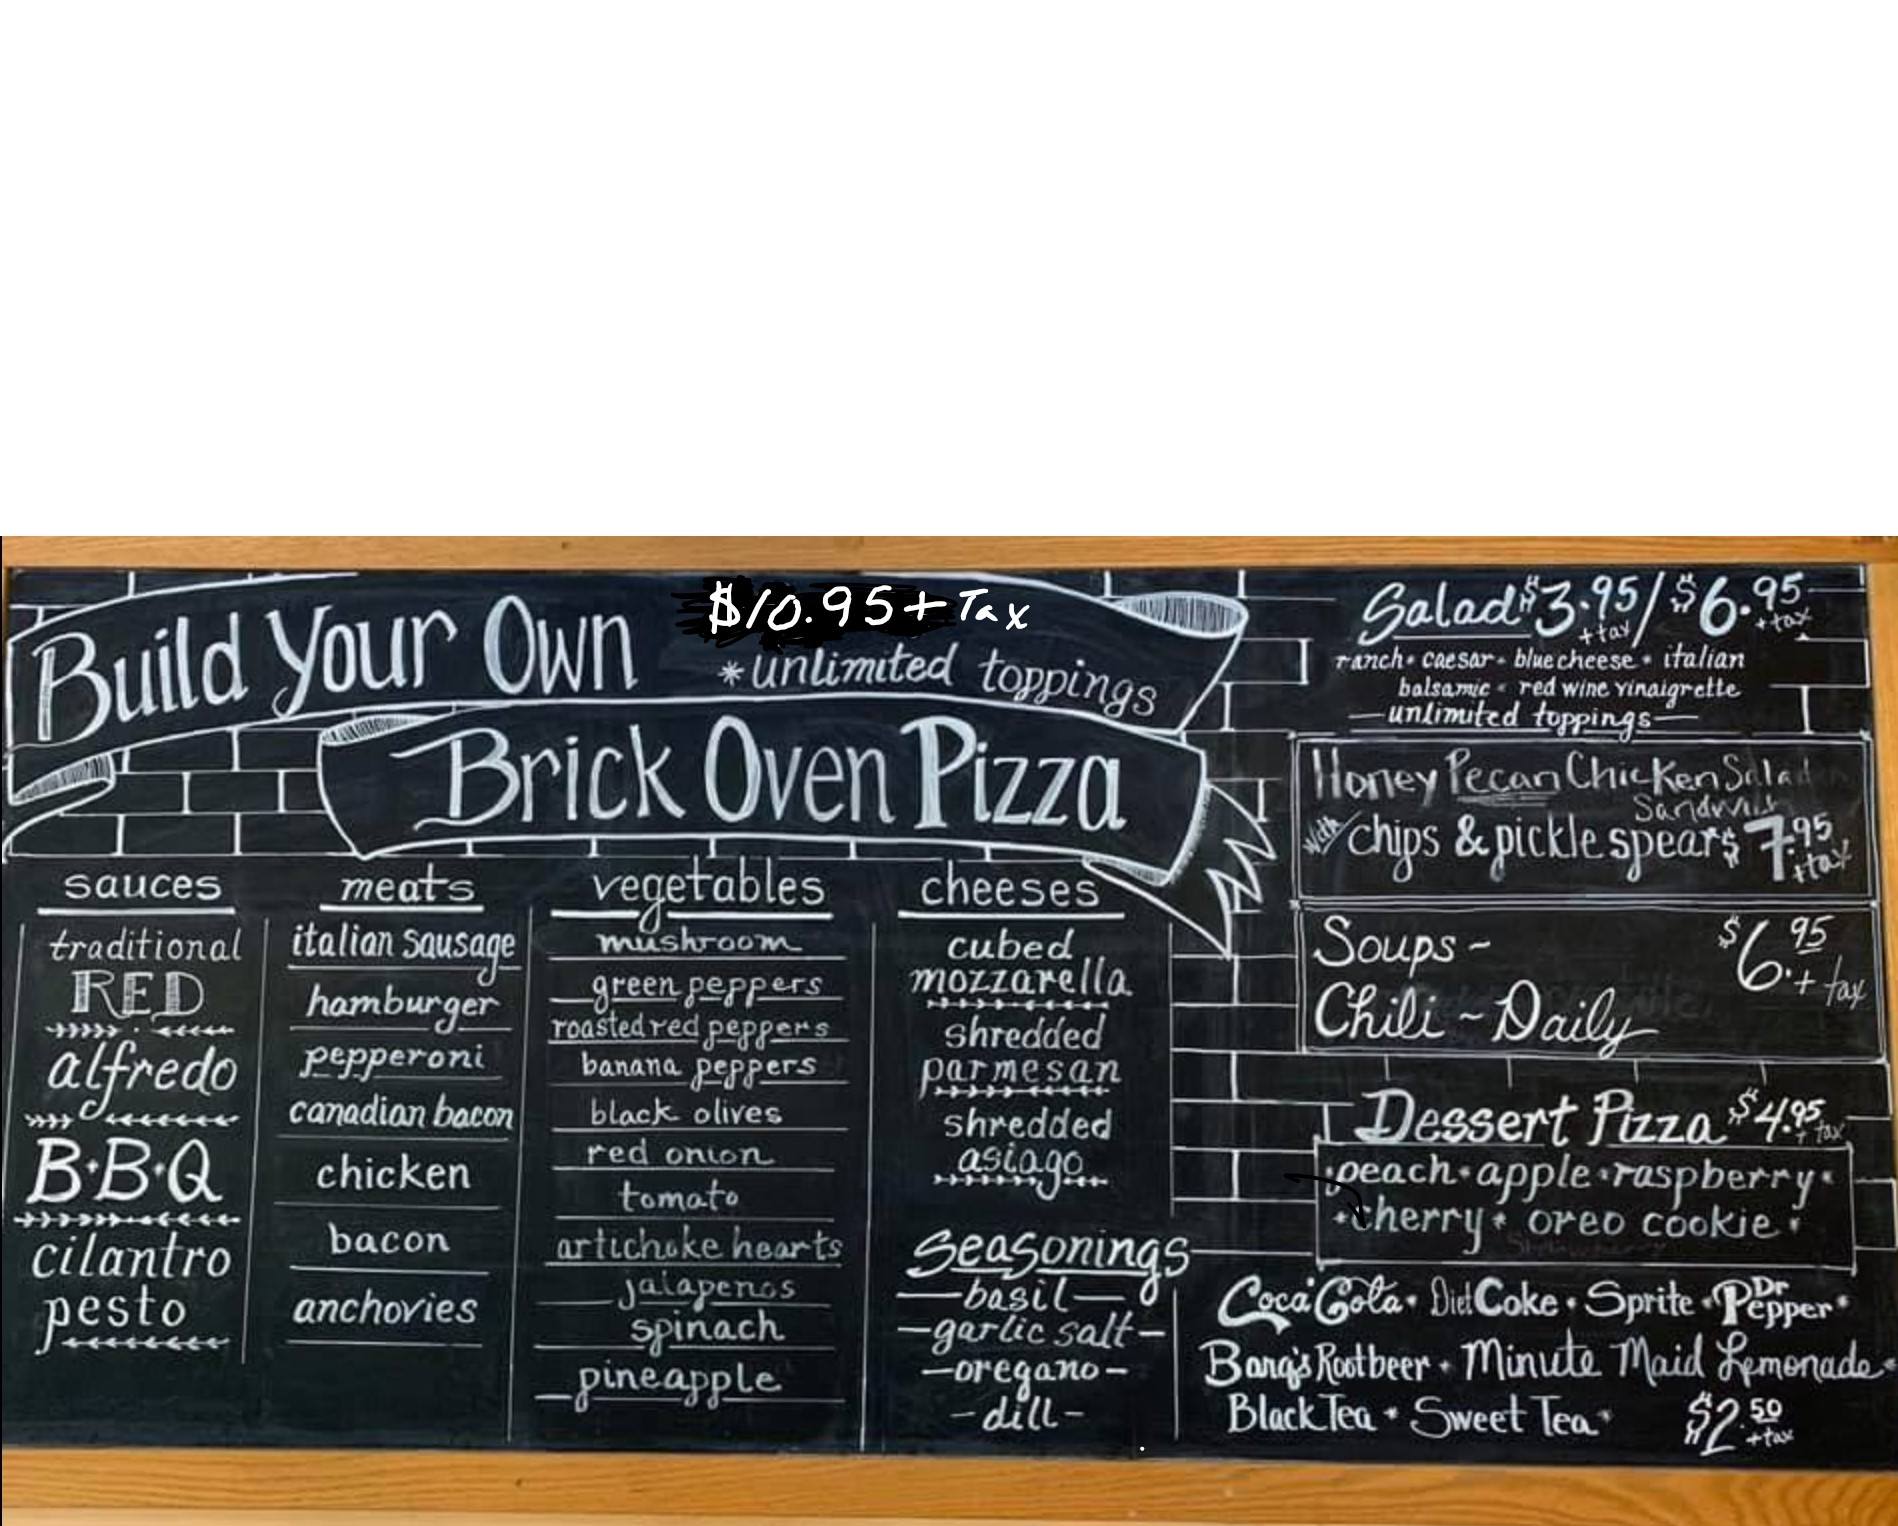 Build Your Own
$10.95 + Tax
*unlimited toppings
Brick Oven Pizza
sauces
traditional
RED
alfredo
B•B•Q
cilantro
pesto
meats
italian sausage
hamburger
pepperoni
canadian bacon
chicken
bacon
anchovies
vegetables
mushroom
green peppers
roasted red peppers
banana peppers
black olives
red onion
tomato
artichoke hearts
jalapenos
spinach
pineapple
cheeses
cubed
mozzarella
shredded
parmesan
shredded
asiago
Seasonings
basil
-garlic salt-
-oregano-
-dill-
Salad $3.95 + tax / $6.95 + tax
ranch • caesar • blue cheese • italian
balsamic • red wine vinaigrette
unlimited toppings
Honey Pecan Chicken Salad
Sandwich
with chips & pickle spears $7.95 + tax
Soups ~ $6.95 + tax
Chili ~ Daily
Dessert Pizza $4.95 + tax
•peach•apple•raspberry•
•cherry• oreo cookie •
Coca Cola • Diet Coke • Sprite • Dr Pepper •
Barq's Rootbeer • Minute Maid Lemonade •
Black Tea • Sweet Tea • $2.50 + tax